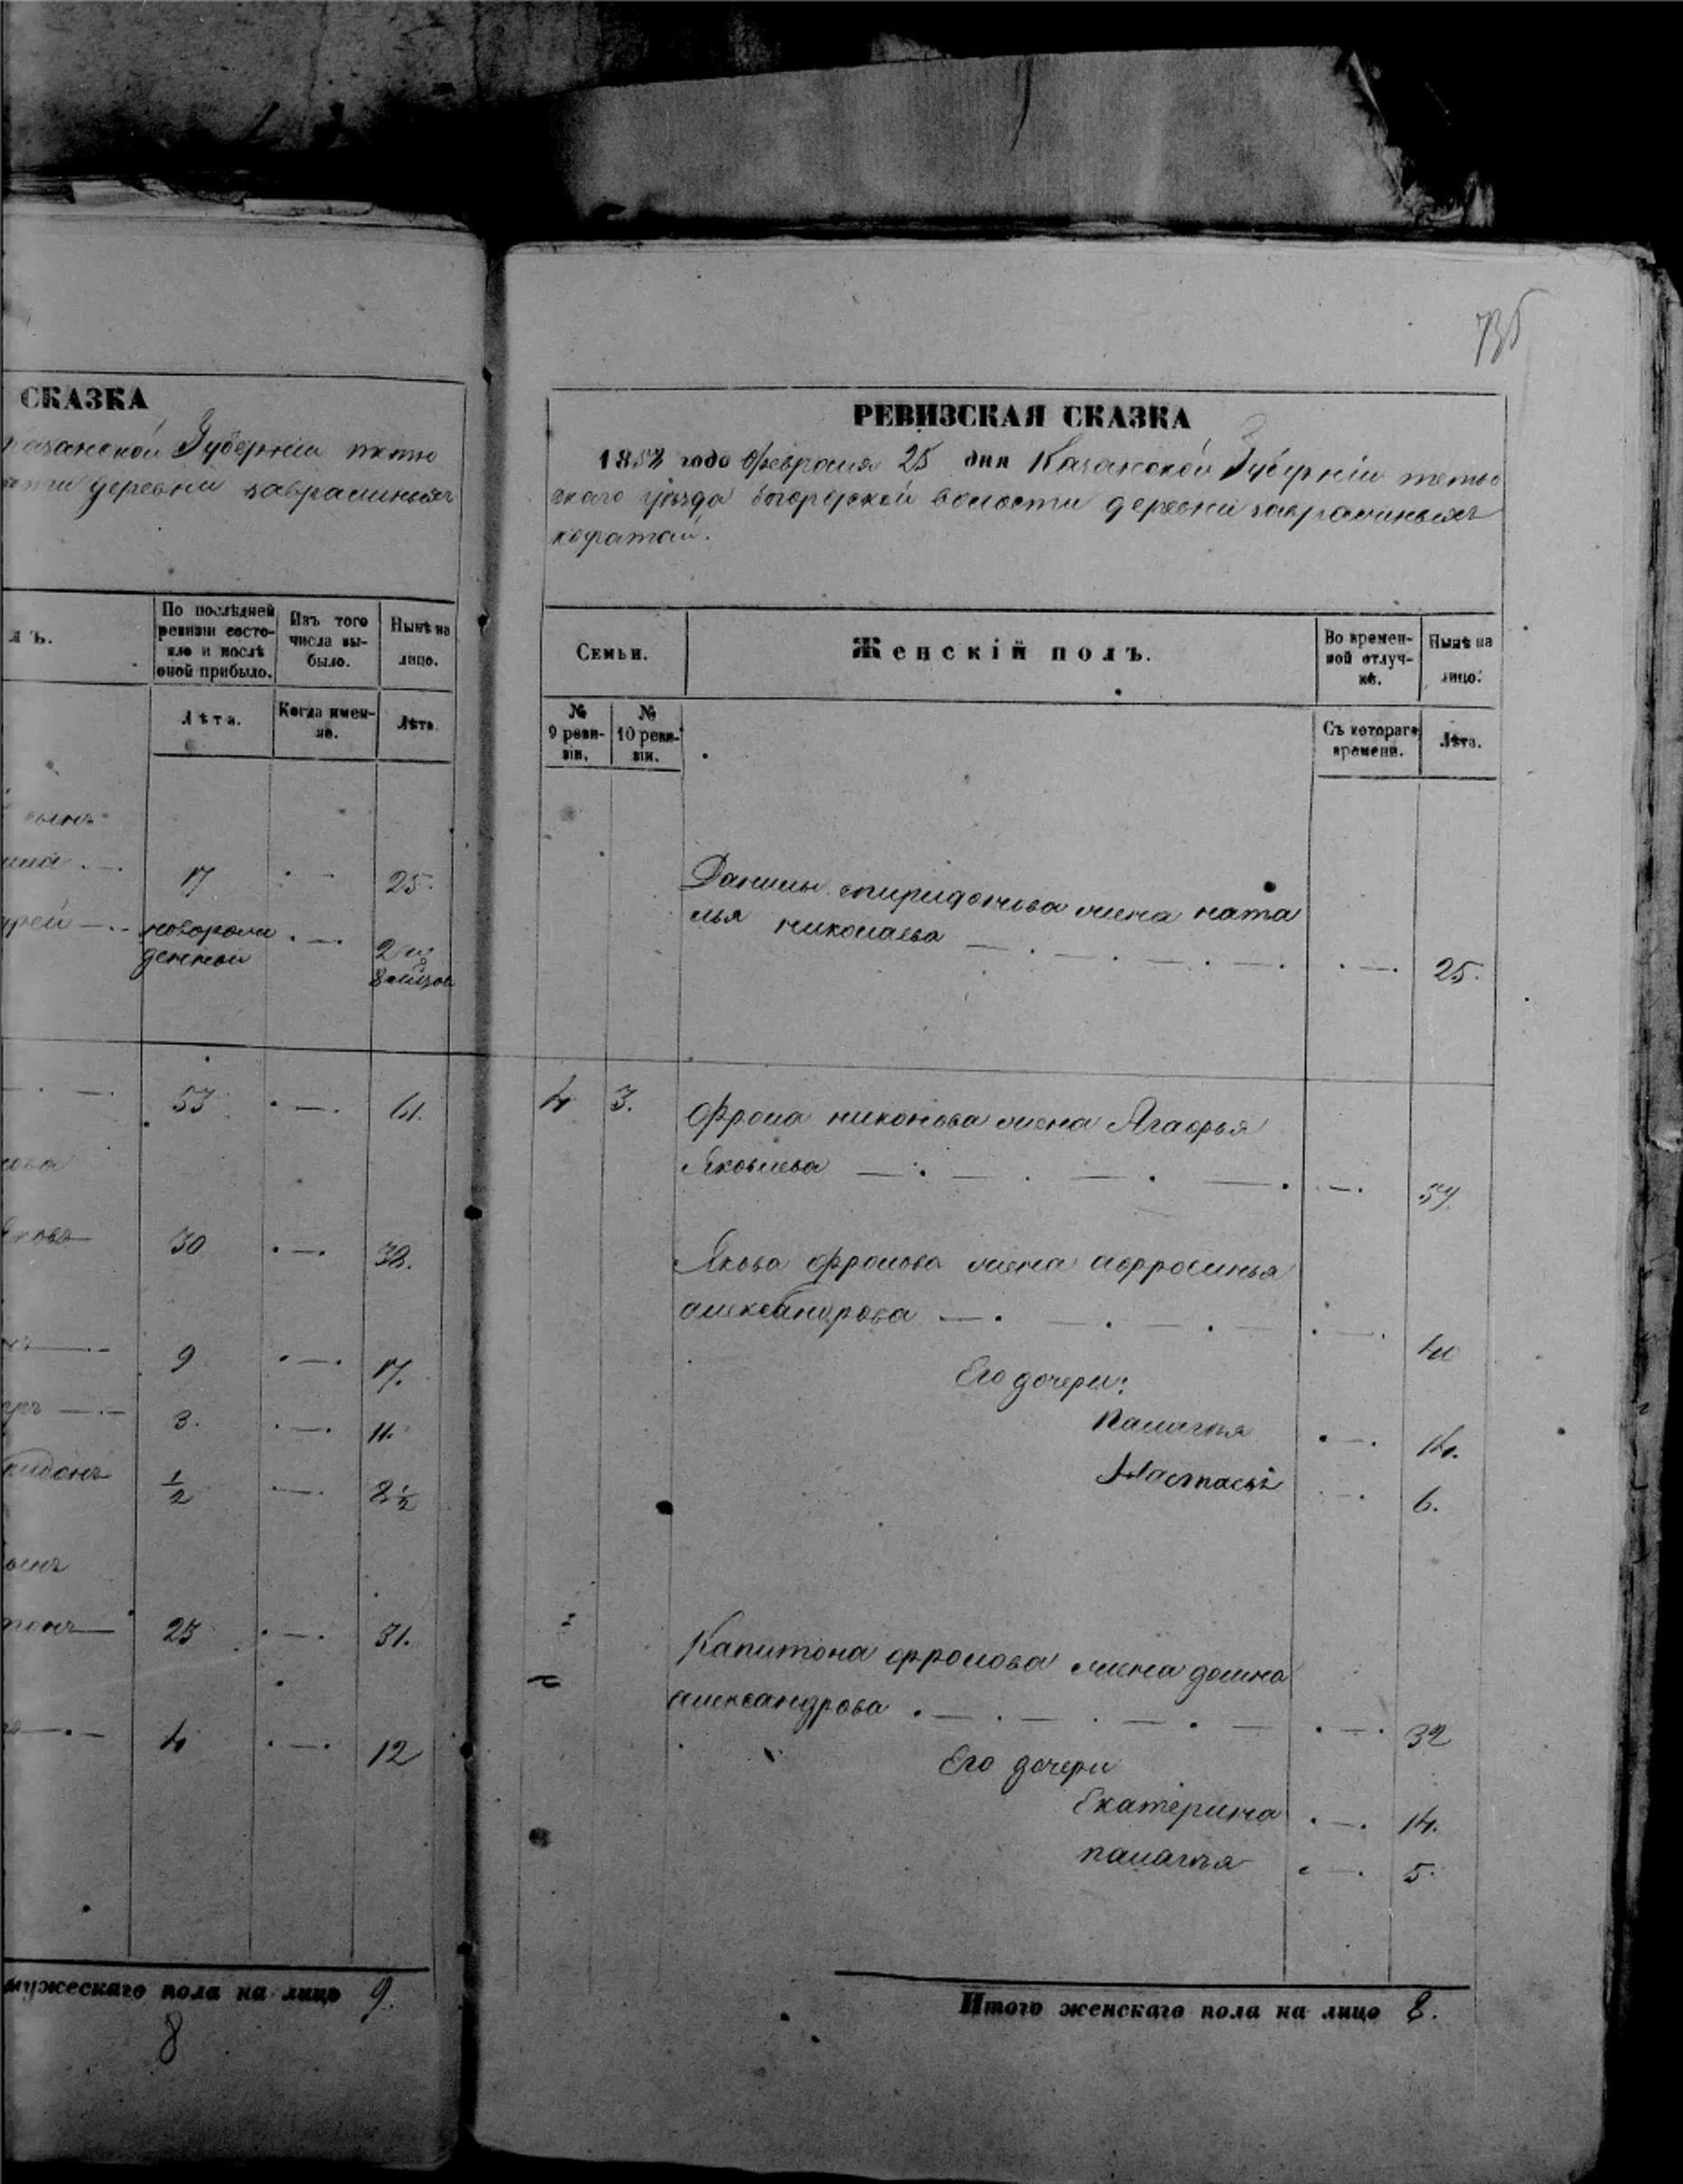 СКАЗКА
казанской Губернiи тетю
деревни завралиныхъ
По послѣдней ревизiи состояло и послѣ оной прибыло.
Изъ того числа выбыло.
Нынѣ на лицо.
лъ.
Лѣта.
Когда именно.
Лѣта.
сынъ
17 25.
новорожденной 2 и 8 мѣсяцов
53 61.
30 38.
9 17.
3. 11.
1/2 8 1/2
23 31.
4 12
мужескаго пола на лицо 9.
8
735
РЕВИЗСКАЯ СКАЗКА
1858 года февраля 25 дня Казанской Губернiи тетю
скаго уѣзда богородской волости деревни завралиныхъ
Семьи.
Женскiй полъ.
Во временной отлучкѣ.
Нынѣ на лицо.
№ 9 ревизiи.
№ 10 ревизiи.
Съ котораго времени.
Лѣта.
Данилы спиридонова жена ната
лья николаева 25.
4 3. Фрола никонова жена Агафья
Яковлева 57
Якова фролова жена афросинья
александрова 40
Его дочери:
палагея 14.
Настасья 6.
Капитона фролова жена домна
александрова 32
Его дочери
Екатерина 14.
палагея 5.
Итого женскаго пола на лицо 8.